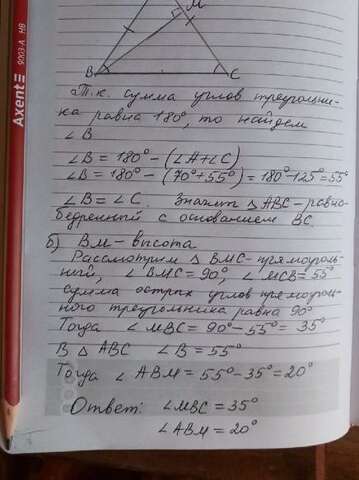 Axent 9003-A HB
M
B
C
Т.к. сумма углов треугольни-
ка равна 180°, то найдем
∠B
∠B = 180° - (∠A+∠C)
∠B = 180° - (70°+55°) = 180°-125°=55°
∠B = ∠C. Значит △ABC - равно-
бедренный с основанием BC.
б) BM - высота
Рассмотрим △ BMC - прямоуголь-
ный, ∠BMC = 90°, ∠MCB = 55°
Сумма острых углов прямоуголь-
ного треугольника равна 90°
Тогда ∠MBC = 90° - 55° = 35°
В △ ABC ∠B = 55°
Тогда ∠ABM = 55° - 35° = 20°
Ответ: ∠MBC = 35°
∠ABM = 20°